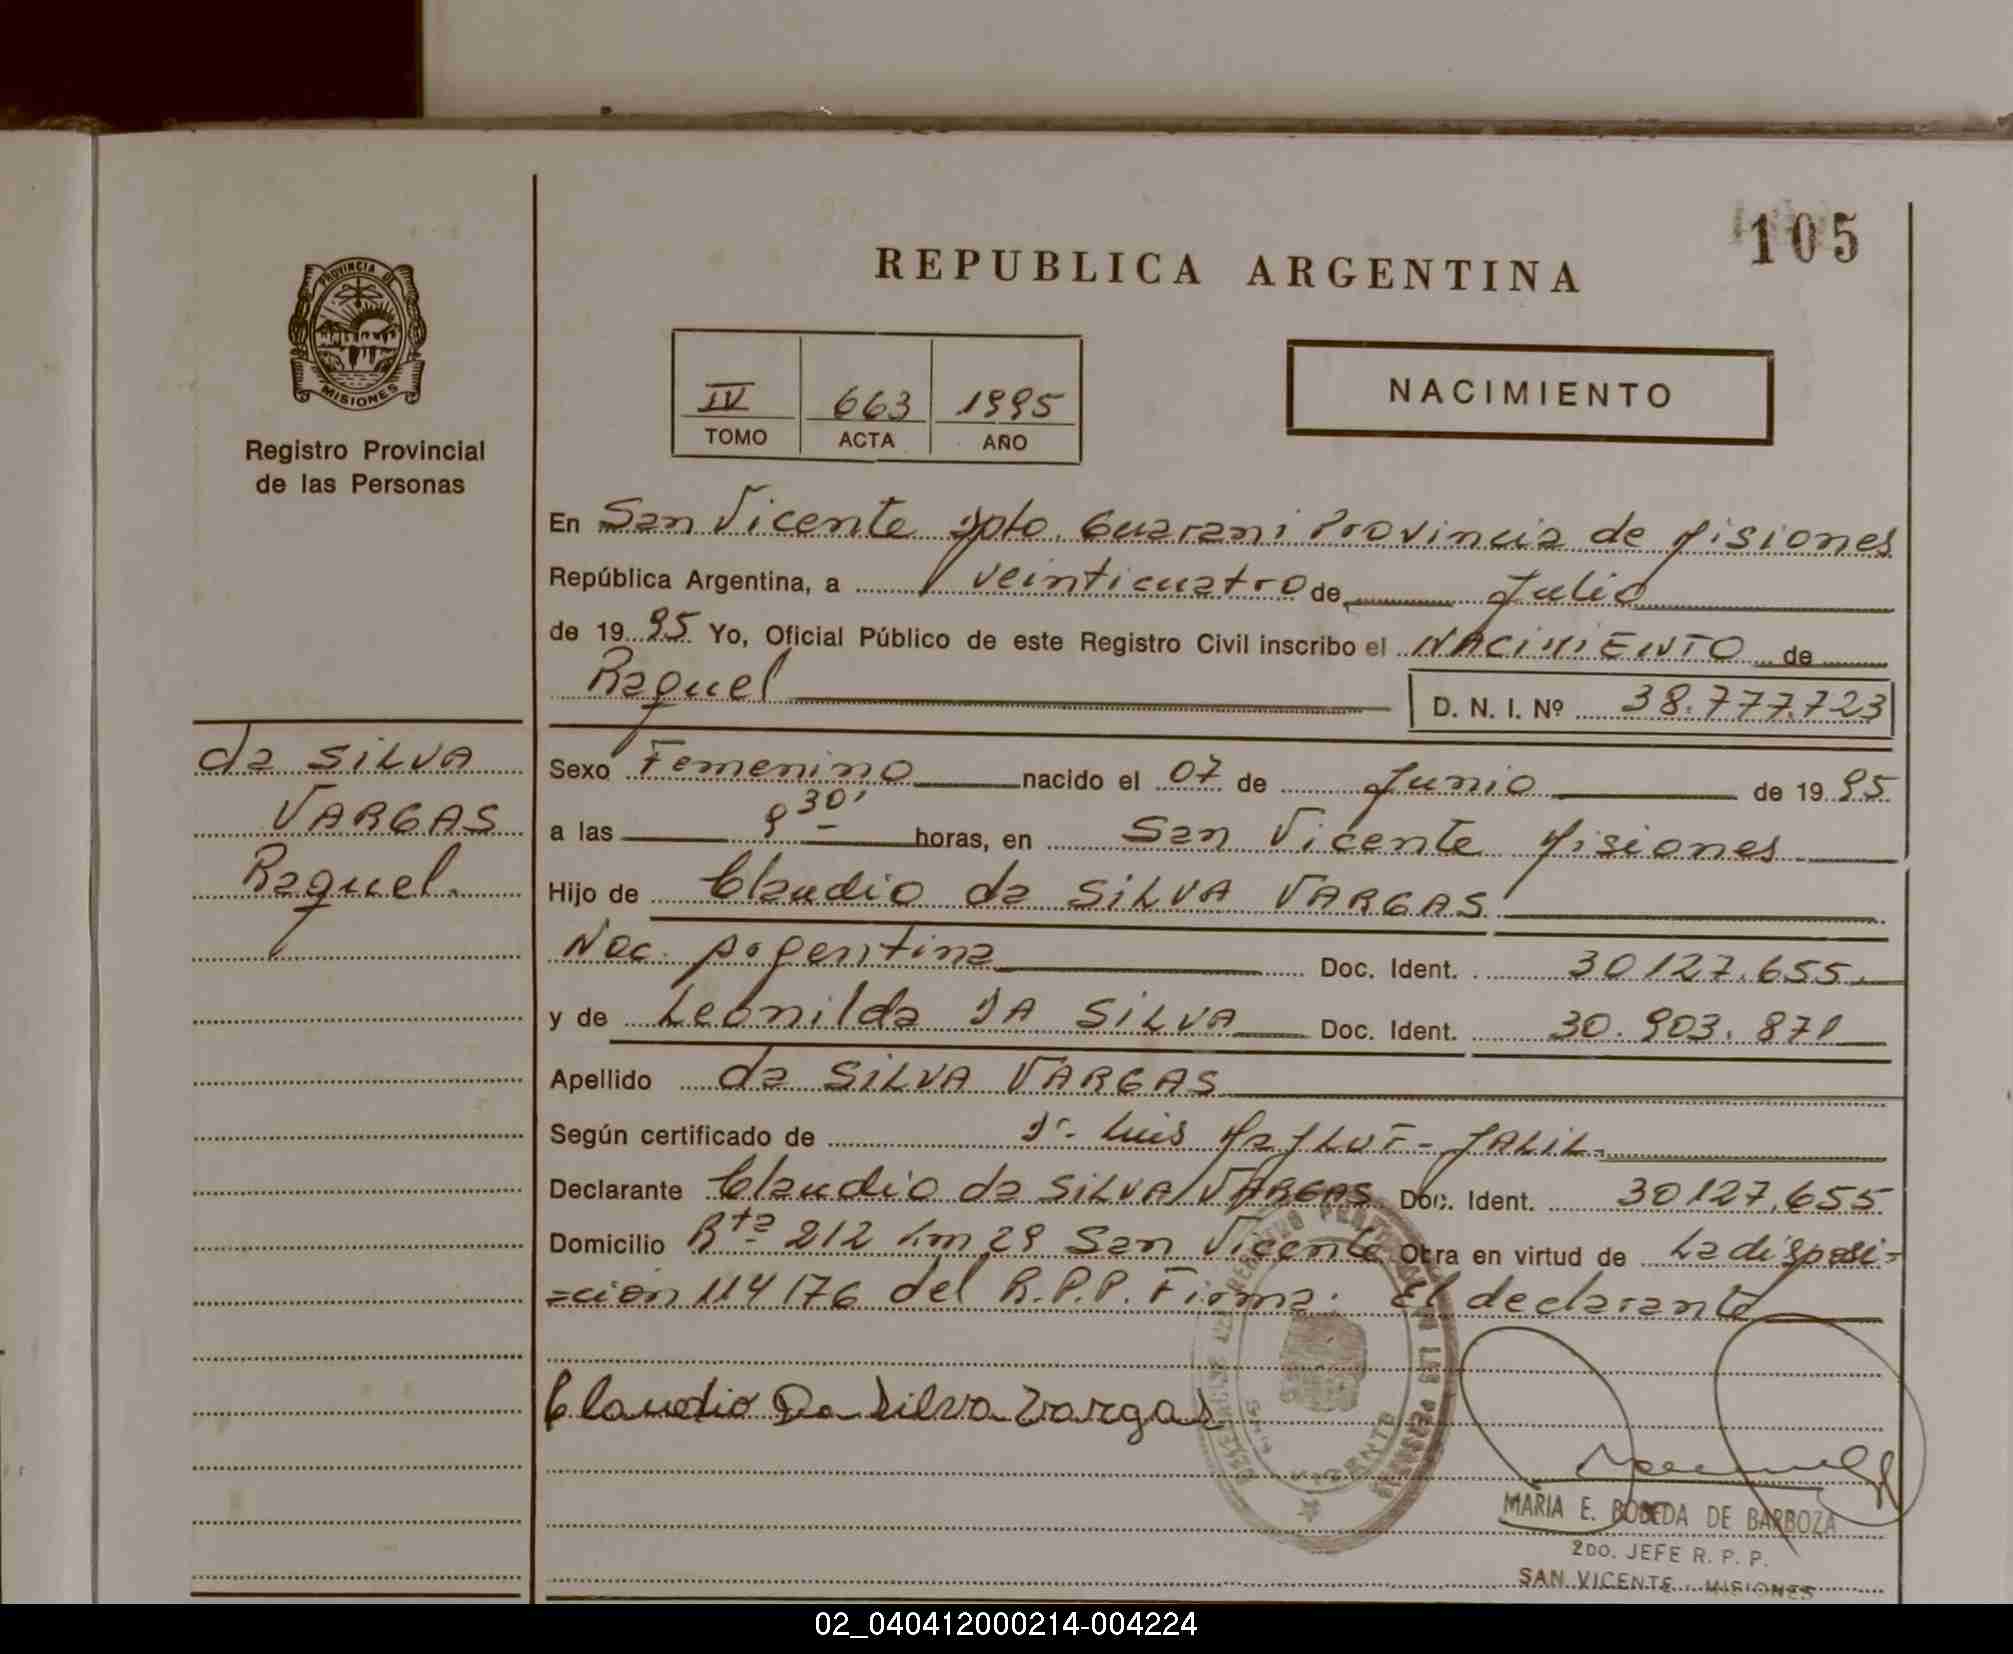 105
REPUBLICA ARGENTINA
PROVINCIA DE
MISIONES
Registro Provincial
de las Personas
IV 663 1995
TOMO ACTA AÑO
NACIMIENTO
En San Vicente Dpto. Guarani Provincia de Misiones
República Argentina, a veinticuatro de Julio
de 1995 Yo, Oficial Público de este Registro Civil inscribo el NACIMIENTO de
Raquel D. N. I. Nº 38.777.723
da SILVA
VARGAS
Raquel.
Sexo Femenino nacido el 07 de Junio de 1995
a las 9 30' horas, en San Vicente Misiones
Hijo de Claudio da SILVA VARGAS
Nac. Argentina Doc. Ident. 30127.655.
y de Leonilda DA SILVA Doc. Ident. 30.903.871
Apellido da SILVA VARGAS
Según certificado de Dr. Luis JALIL
Declarante Claudio da SILVA VARGAS Doc. Ident. 30127.655
Domicilio Rta 212 Km 29 San Vicente Obra en virtud de La disposi=
=cion 114/76 del R.P.P. Firma: El declarante
Claudio Da Silva Vargas
VICENTE
MARIA E. BOBEDA DE BARBOZA
2DO. JEFE R. P. P.
SAN VICENTE - MISIONES
02_040412000214-004224